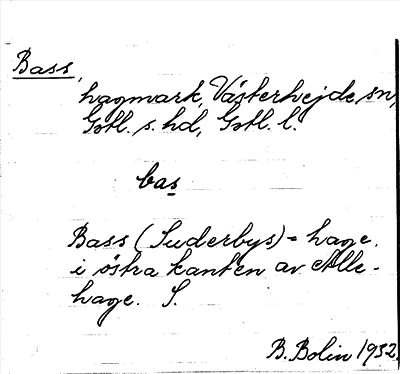 Bass,
hagmark, Västerhejde sn,
Gotl. s. hd, Gotl. l.
bas
Bass (Suderbys) = hage.
i östra kanten av Alle-
hage. S.
B. Bolin 1932.